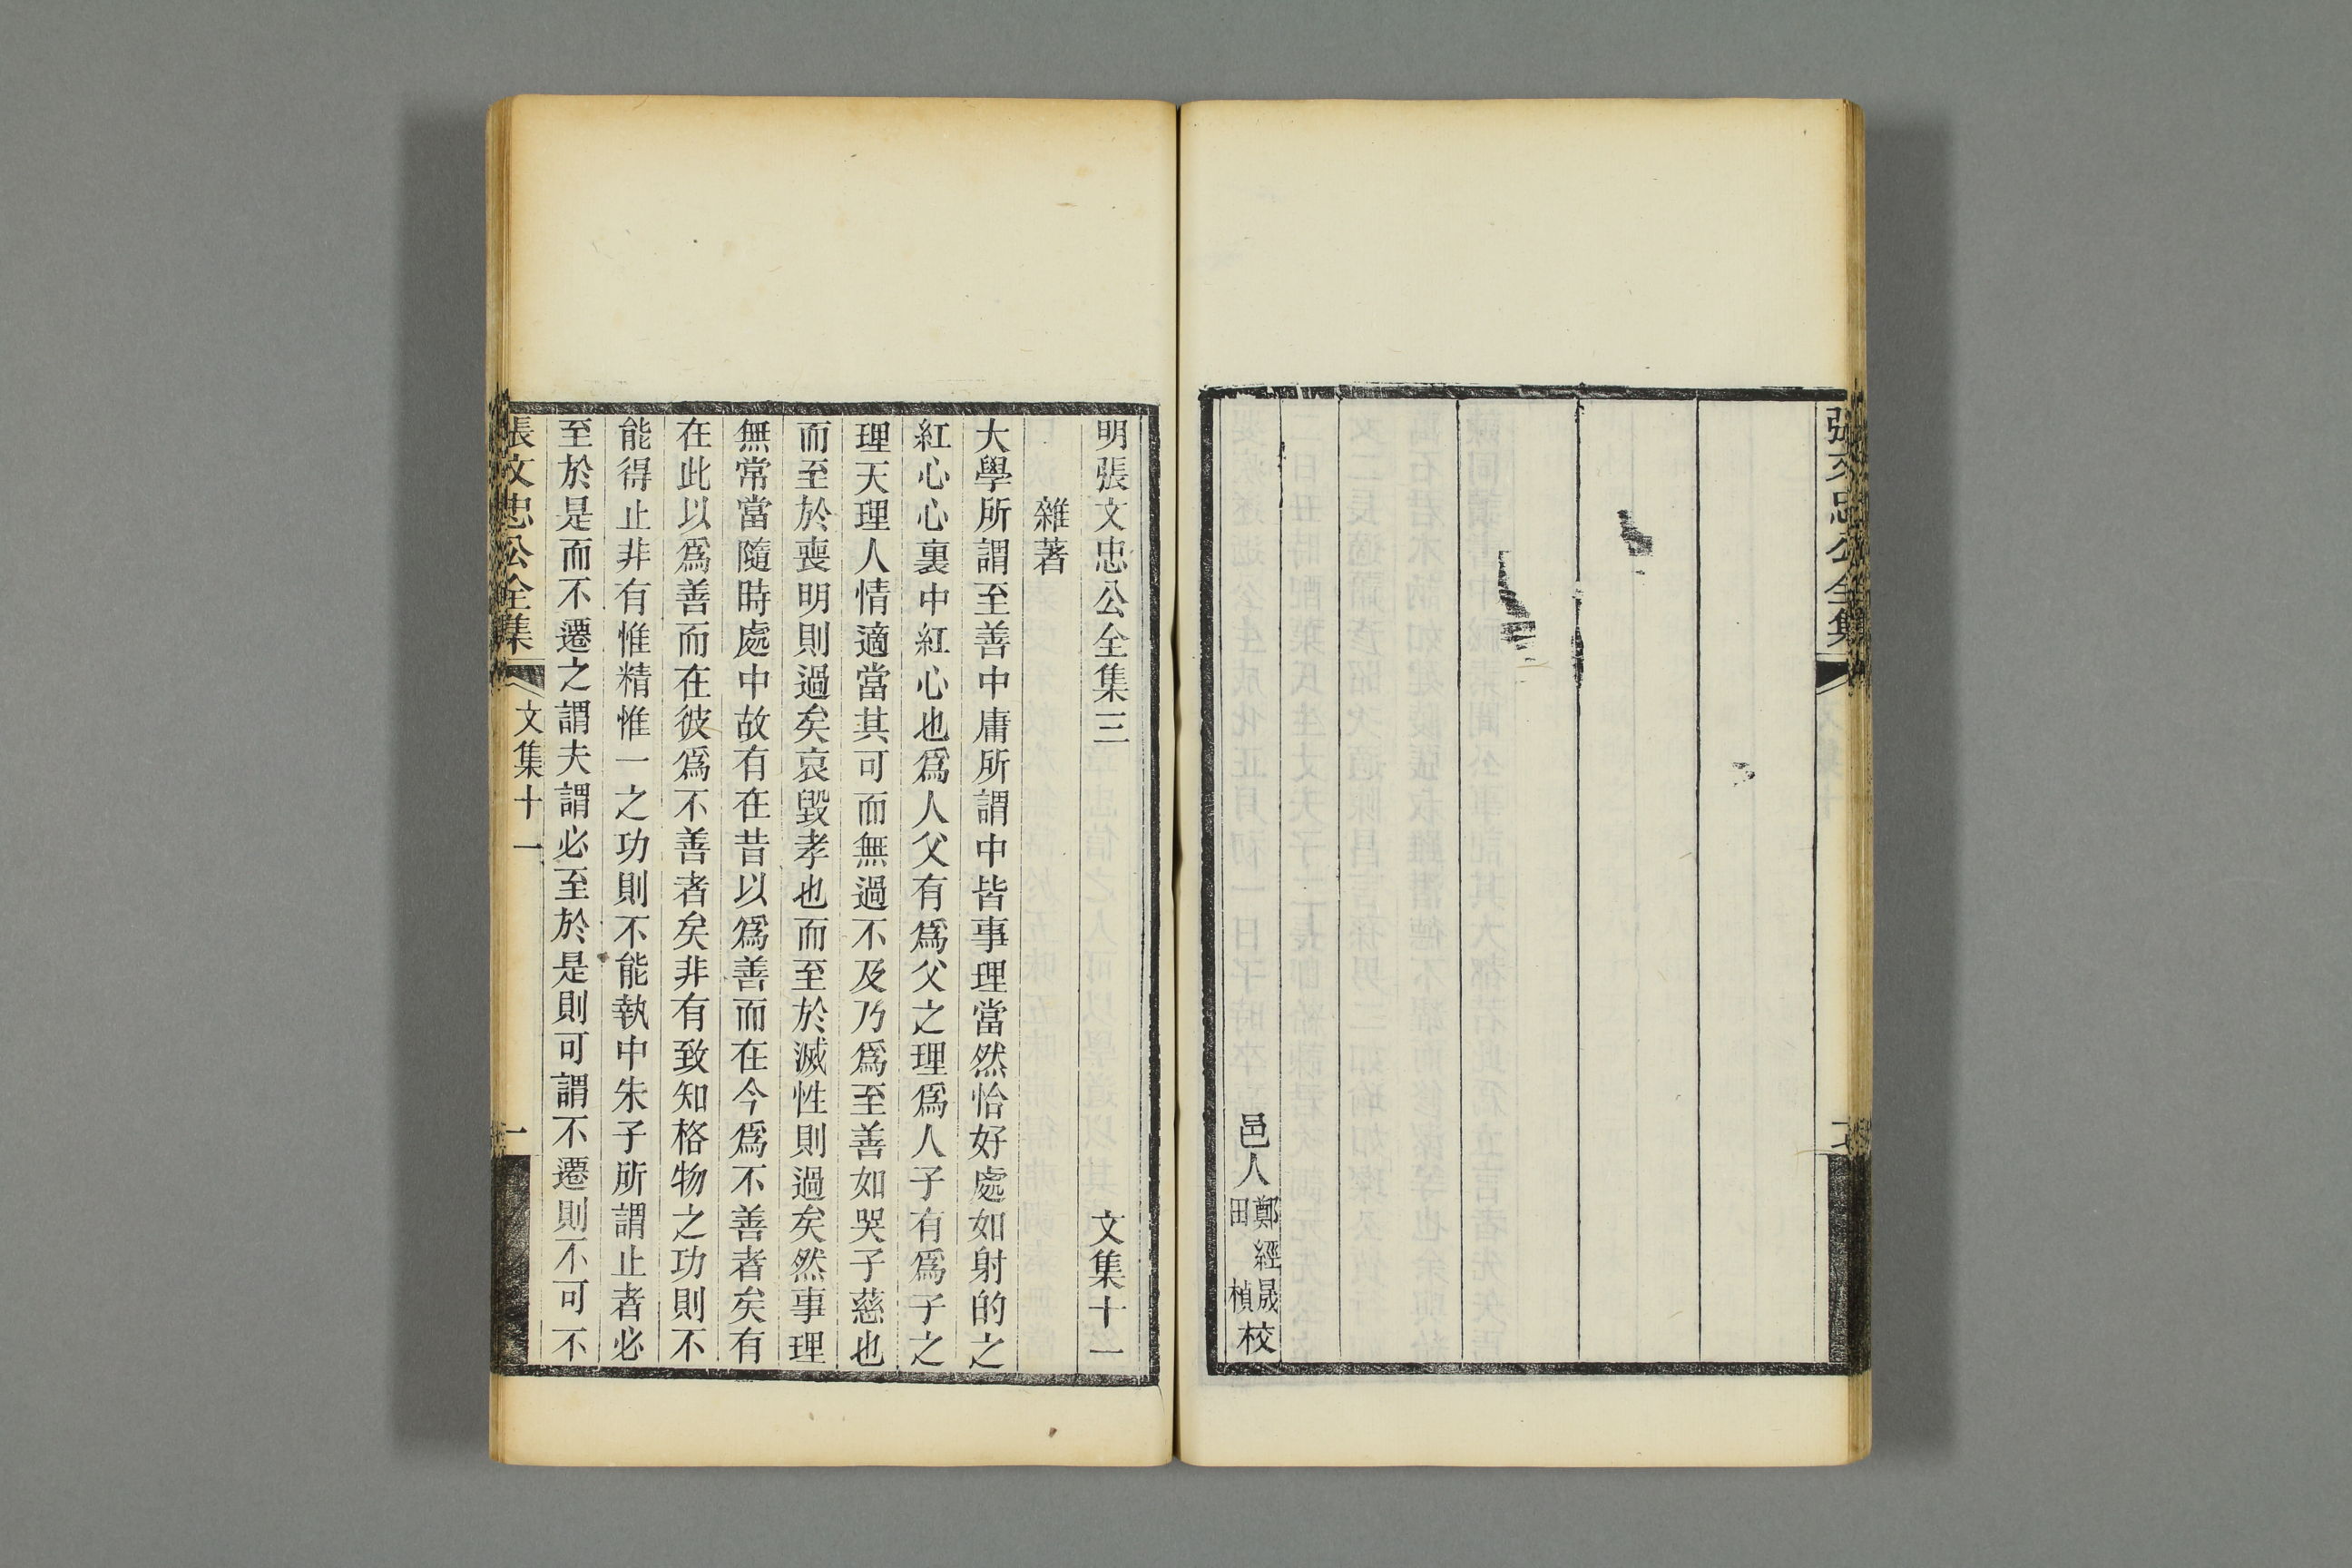 張文忠公全集
邑人鄭經晟校
田楨
明張文忠公全集三 文集十一
雜著
大學所謂至善中庸所謂中皆事理當然恰好處如射的之
紅心心裏中紅心也爲人父有爲父之理爲人子有爲子之
理天理人情適當其可而無過不及乃爲至善如哭子慈也
而至於喪明則過矣哀毀孝也而至於滅性則過矣然事理
無常當隨時處中故有在昔以爲善而在今爲不善者矣有
在此以爲善而在彼爲不善者矣非有致知格物之功則不
能得止非有惟精惟一之功則不能執中朱子所謂止者必
至於是而不遷之謂夫謂必至於是則可謂不遷則不可不
張文忠公全集 文集十一 一